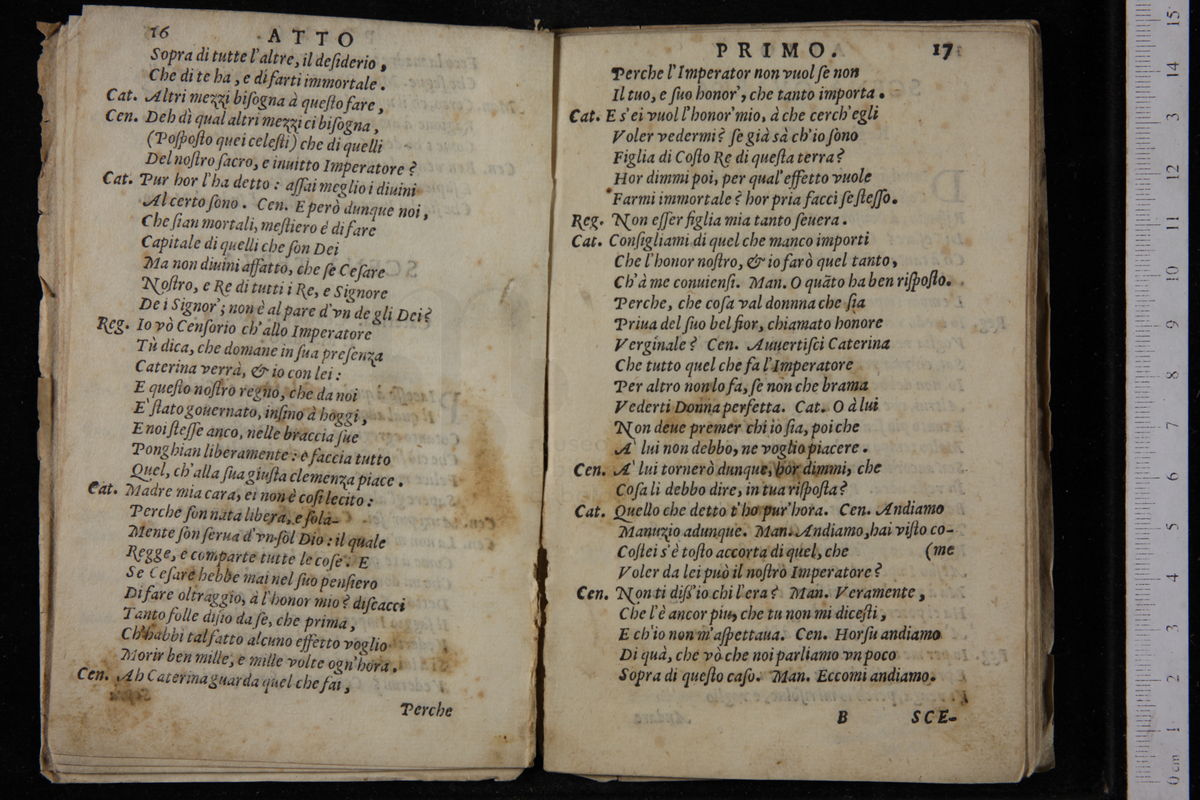 16 ATTO
Sopra di tutte l'altre, il deſiderio,
Che di te ha, e di farti immortale.
Cat. Altri mezzi biſogna à queſto fare,
Cen. Deh dì qual altri mezzi ci biſogna,
(Poſpoſto quei celeſti) che di quelli
Del noſtro ſacro, e inuitto Imperatore?
Cat. Pur hor l'ha detto: aſſai meglio i diuini
Al certo ſono. Cen. E però dunque noi,
Che ſian mortali, meſtiero è di fare
Capitale di quelli che ſon Dei
Ma non diuini affatto, che ſe Ceſare
Noſtro, e Re di tutti i Re, e Signore
De i Signor'; non è al pare d'vn de gli Dei?
Reg. Io vò Cenſorio ch'allo Imperatore
Tù dica, che domane in ſua preſenza
Caterina verrà, & io con lei:
E queſto noſtro regno, che da noi
E' ſtato gouernato, inſino à hoggi,
E noi ſteſſe anco, nelle braccia ſue
Ponghian liberamente: e faccia tutto
Quel, ch'alla ſua giuſta clemenza piace.
Cat. Madre mia cara, ei non è coſi lecito:
Perche ſon nata libera, e ſola-
Mente ſon ſerua d'vn ſol Dio: il quale
Regge, e comparte tutte le coſe. E
Se Ceſare hebbe mai nel ſuo penſiero
Di fare oltraggio, à l'honor mio? diſcacci
Tanto folle diſio da ſe, che prima,
Ch'habbi tal fatto alcuno effetto voglio
Morir ben mille, e mille volte ogn'hora.
Cen. Ah Caterina guarda quel che fai,
Perche
PRIMO. 17
Perche l'Imperator non vuol ſe non
Il tuo, e ſuo honor', che tanto importa.
Cat. E s'ei vuol l'honor' mio, à che cerch'egli
Voler vedermi? ſe già sà ch'io ſono
Figlia di Coſto Re di queſta terra?
Hor dimmi poi, per qual' effetto vuole
Farmi immortale? hor pria facci ſe ſteſſo.
Reg. Non eſſer figlia mia tanto ſeuera.
Cat. Conſigliami di quel che manco importi
Che l'honor noſtro, & io farò quel tanto,
Ch'à me conuienſi. Man. O quãto ha ben riſpoſto.
Perche, che coſa val donnna che ſia
Priua del ſuo bel fior, chiamato honore
Verginale? Cen. Auuertiſci Caterina
Che tutto quel che fa l'Imperatore
Per altro non lo fa, ſe non che brama
Vederti Donna perfetta. Cat. O à lui
Non deue premer chi io ſia, poi che
A' lui non debbo, ne voglio piacere.
Cen. A' lui tornerò dunque, hor dimmi, che
Coſa li debbo dire, in tua riſpoſta?
Cat. Quello che detto t'ho pur'hora. Cen. Andiamo
Manuzio adunque. Man. Andiamo, hai viſto co-
Coſtei s'è toſto accorta di quel, che (me
Voler da lei può il noſtro Imperatore?
Cen. Non ti diſſ'io chi l'era? Man. Veramente,
Che l'è ancor piu, che tu non mi diceſti,
E ch'io non m'aſpettaua. Cen. Horſu andiamo
Di quà, che vò che noi parliamo vn poco
Sopra di queſto caſo. Man. Eccomi andiamo.
B SCE-